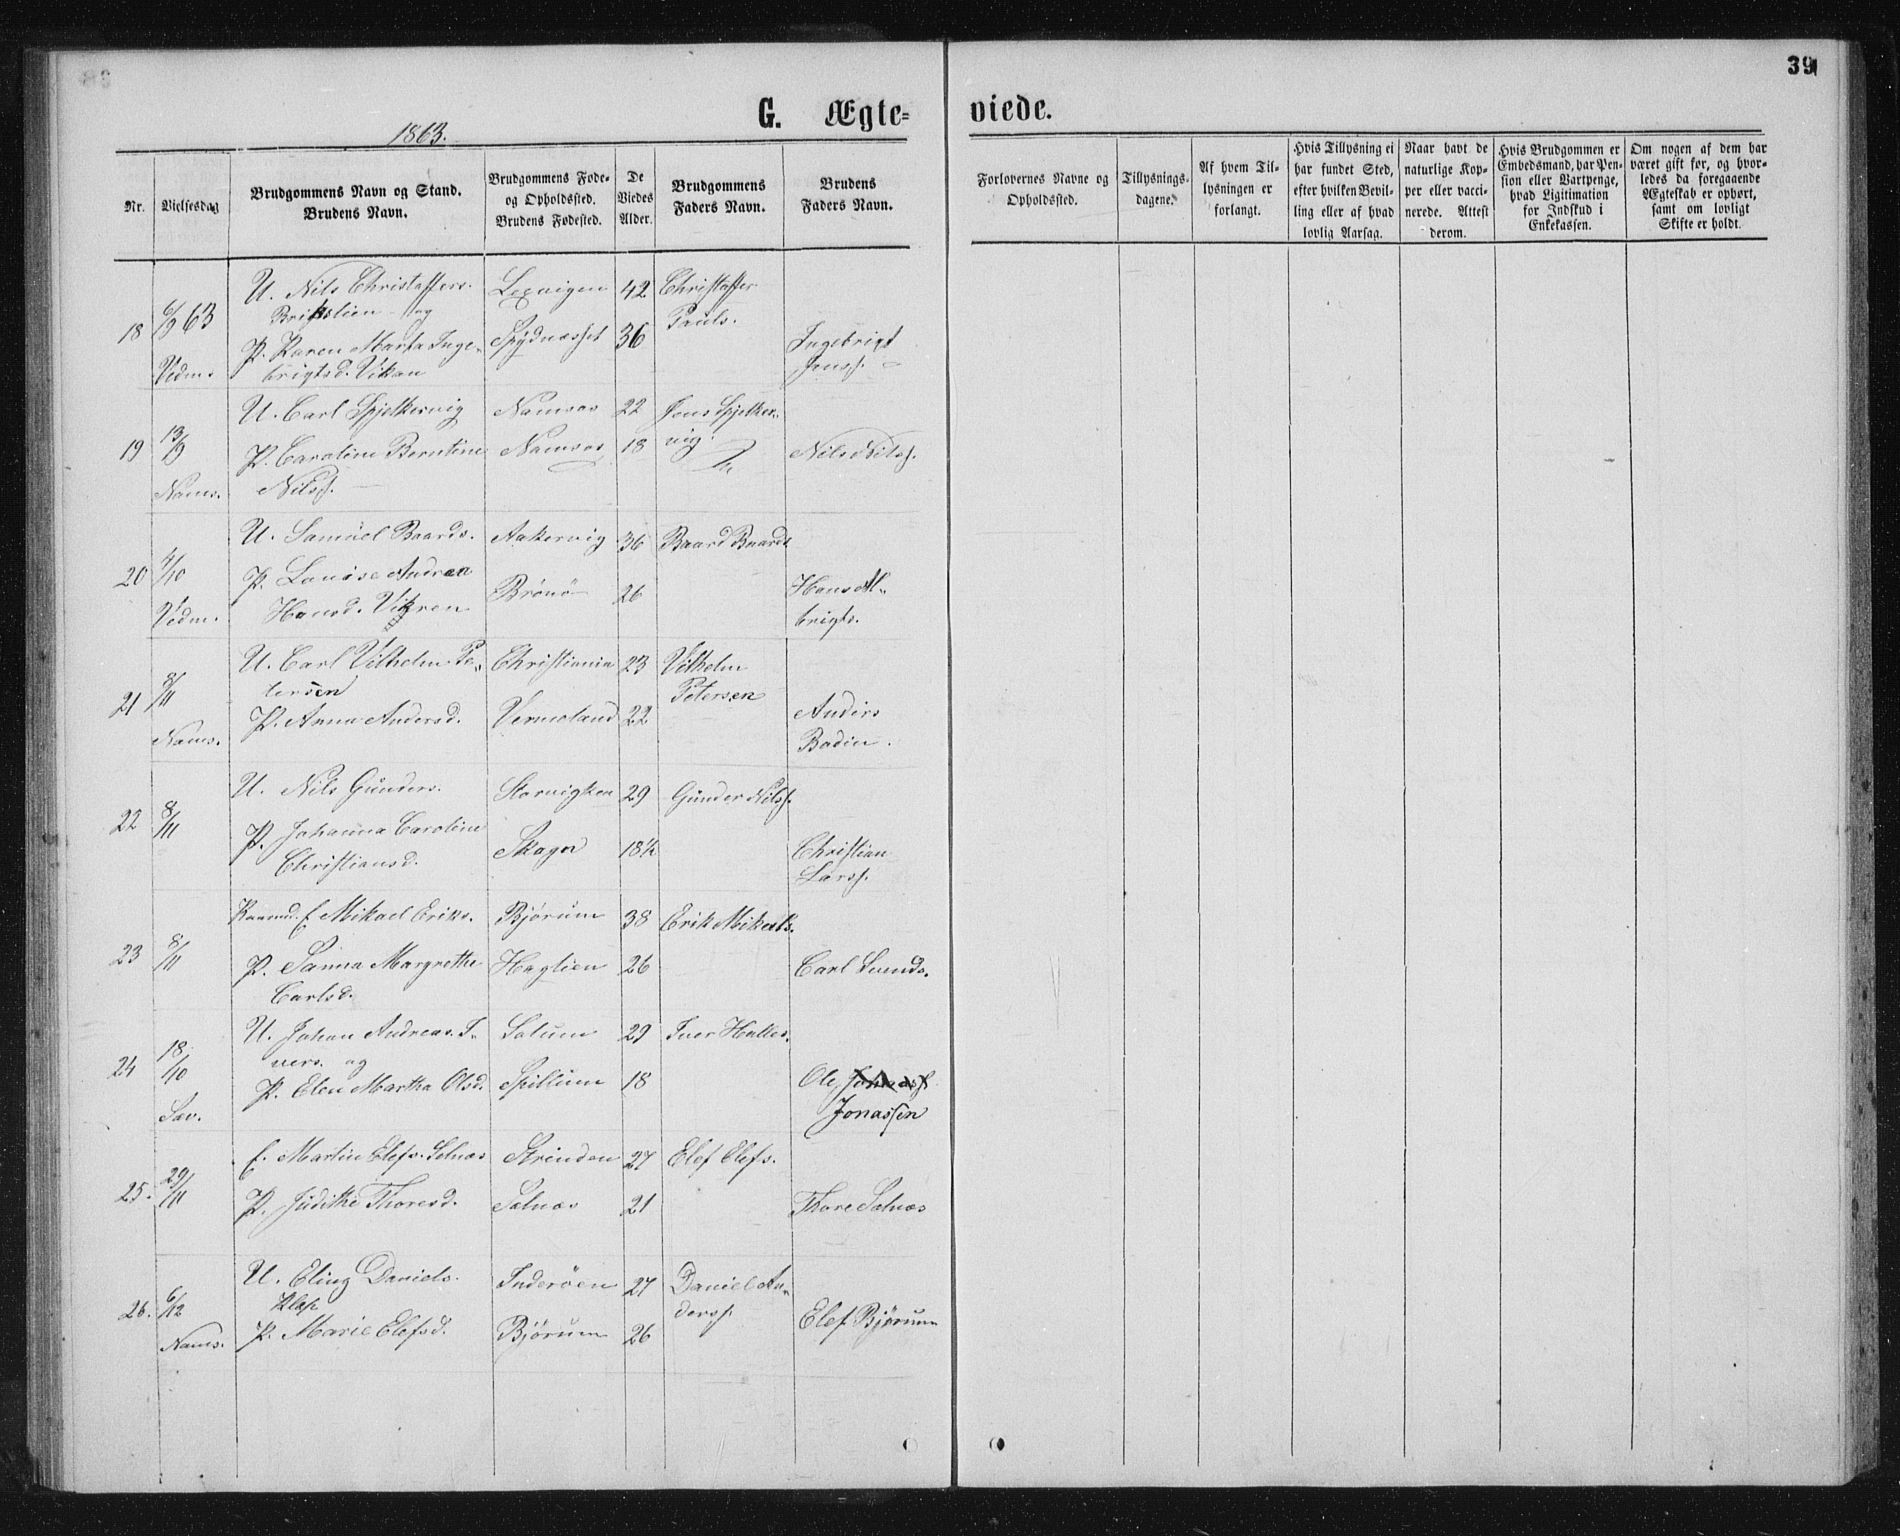 39
G. Ægte-
viede.
1863.
Nr.
Vielsesdag
Brudgommens Navn og Stand.
Brudens Navn.
Brudgommens Føde-
og Opholdssted.
Brudens Fødested.
De
Viedes
Alder.
Brudgommens
Faders Navn.
Brudens
Faders Navn.
Forlovernes Navne og
Opholdssted.
Tillysnings-
dagene.
Af hvem Til-
lysningen er
forlangt.
Hvis Tillysning ei
har fundet Sted,
efter hvilken Bevil-
ling eller af hvad
lovlig Aarsag.
Naar havt de
naturlige Kop-
per eller vacci-
nerede. Attest
derom.
Hvis Brudgommen er
Embedsmand, har Pen-
sion eller Vartpenge,
hvad Ligitimation
for Indskud i
Enkekassen.
Om nogen af dem har
været gift før, og hvor-
ledes da foregaaende
Ægteskab er ophørt,
samt om lovligt
Skifte er holdt.
18 6/9 63 Vedm.
U. Nils Christoffers.
og
Lexvigen 42 Christoffer
Pauls.
P. Karen Marta Inge-
brigtsd. Vikan
Spydnæsset 36 Ingebrigt
Jenss.
19 13/9 Nams.
U. Carl Spjelkervig Namsos 22 Jens Spjelker-
vig
P. Caroline Berntine Namsos 18 Nils Nilss.
Nilss.
20 4/10 Vedm.
U. Samuel Baards. Aakervig 36 Baard Baards.
P. Lovise Andrea Brönö 26 Hans Al-
Hansd. brigts.
21 8/11 Nams.
U. Carl Vilhelm Pe- Christiania 23 Vilhelm
tersen Petersen
P. Anna Andersd. Vermeland 22 Anders
Badin.
22 8/11
U. Nils Gunders. 29 Gunder Nilss.
P. Johanna Caroline Skage 18½ Christian
Christiansd. Larss.
23 8/11
E. Mikael Eriks. Bjørum 38 Erik Mikals.
P. Sanna Margrethe Haglien 26 Carl Svends.
Carlsd.
24 18/10 Sæv.
U. Johan Andreas I- 29 Iver Halles.
vers. og
P. Elen Martha Olsd. Spillum 18 Ole
Jonassen
25. 29/11
E. Martin Elefs. Selnæs Strinden 27 Elef Elefs.
P. Judithe Thoresd. Selnæs 21 Thore Selnæs
26. 6/12 Nams.
U. Eling Daniels. Inderöen 27 Daniel An-
Klæp derss.
P. Marie Elefsd. Bjørum 26 Elef Bjørum